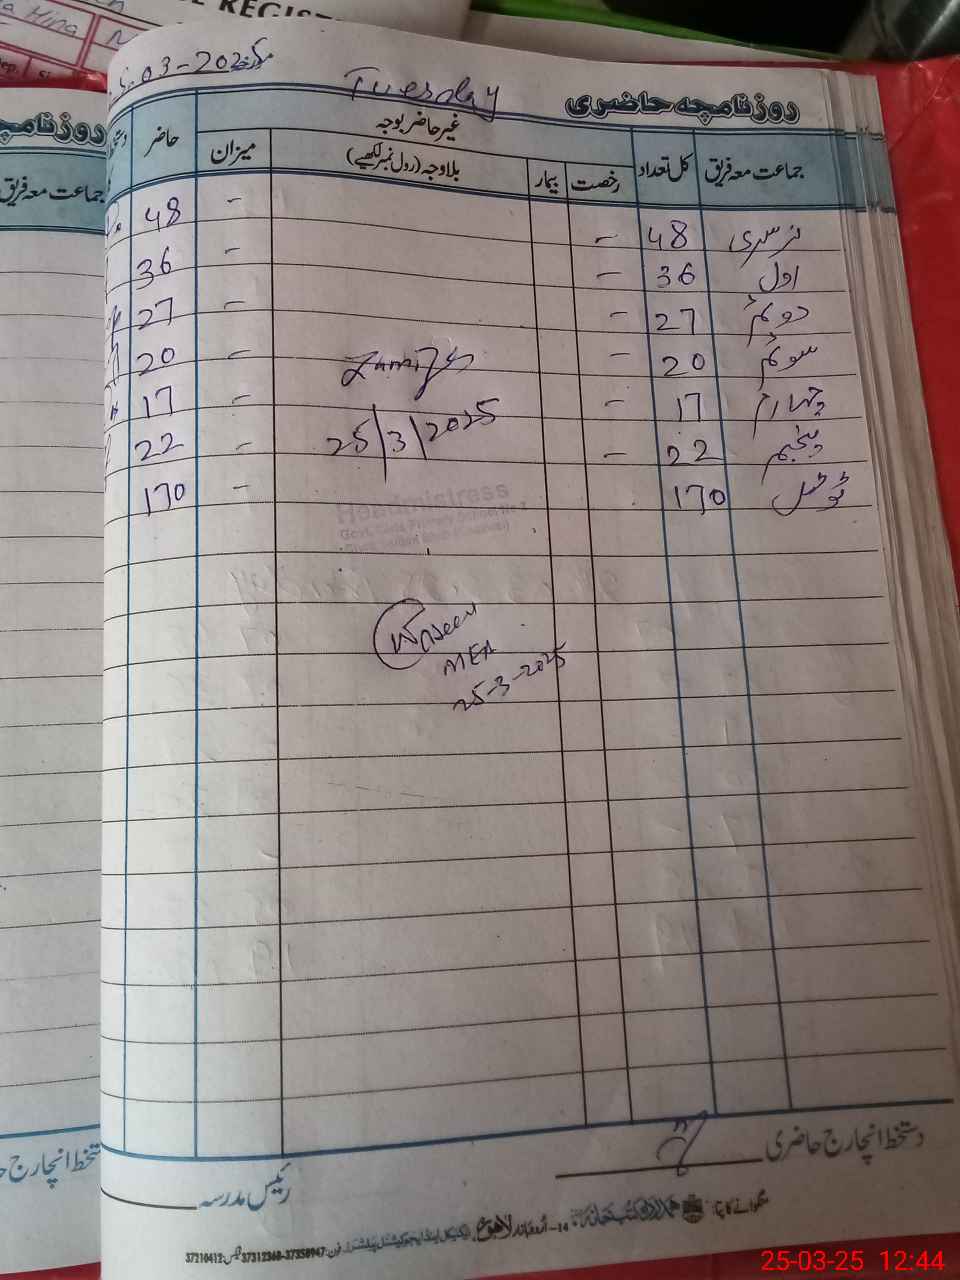 REGIST
Hina
03-2025 مورخہ
Tuesday
روزنامچہ حاضری
جماعت معہ فریق کل تعداد رخصت بیمار بلاوجہ (رول نمبر لکھیے) غیر حاضر بوجہ میزان حاضر
نرسری 48 - - 48
اول 36 - - 36
دوئم 27 - - 27
سوئم 20 - - 20
چہارم 17 - - 17
پنجم 22 - - 22
ٹوٹل 170 - 170
25/3/2025
Headmistress
Waseem
MEA
25-3-2025
دستخط انچارج حاضری
رئیس مدرسہ
منگوانے کا پتہ: ہمدرد کتب خانہ
14-اردو بازار لاہور
فون: 37312368-37358947 فیکس: 37210412
روزنامچہ
جماعت معہ فریق
دستخط انچارج
25-03-25 12:44